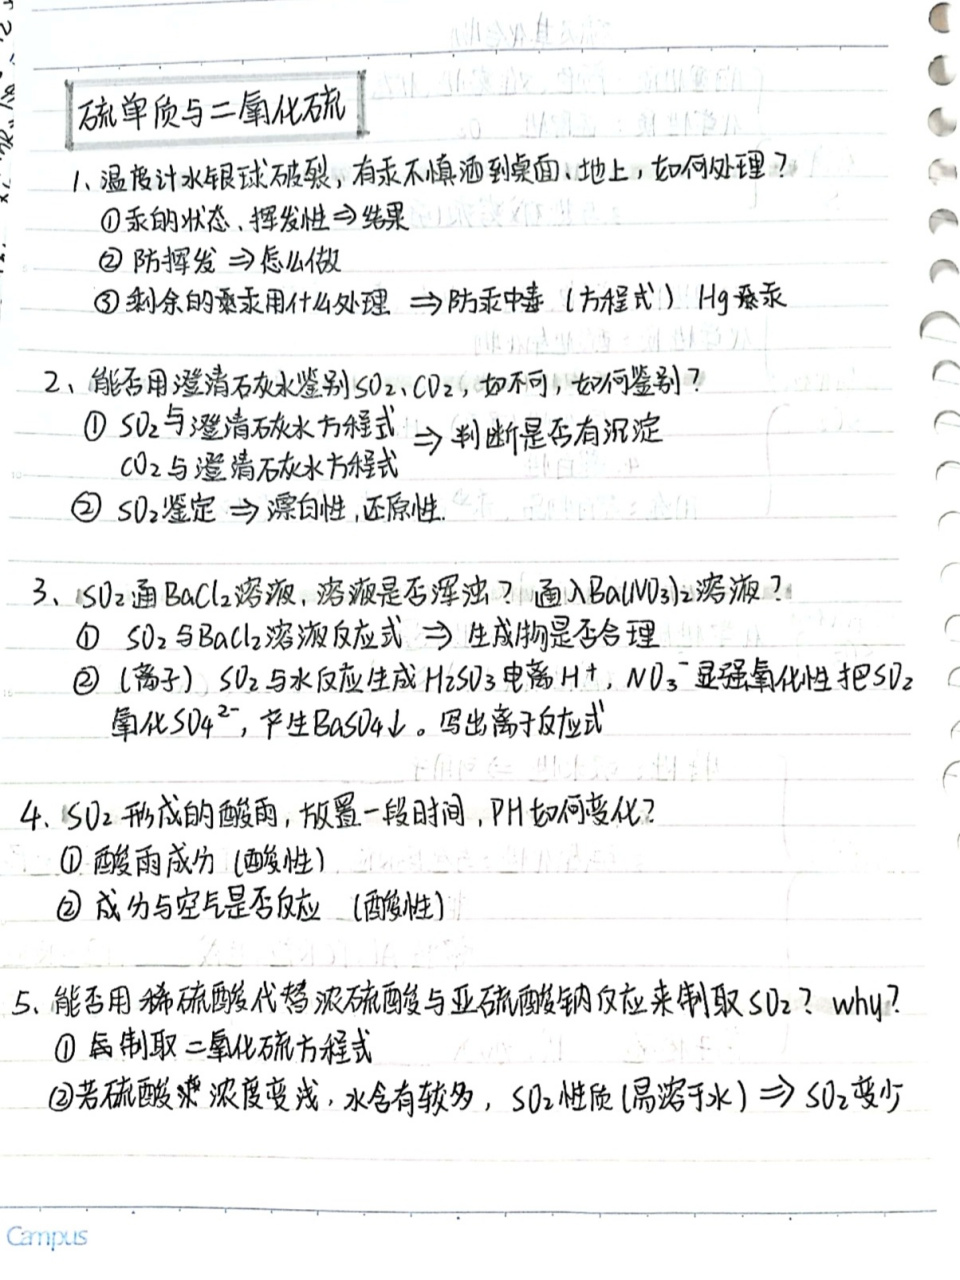 硫单质与二氧化硫
1、温度计水银球破裂，有汞不慎洒到桌面、地上，如何处理？
①汞的状态、挥发性⇒结果
②防挥发⇒怎么做
③剩余的汞用什么处理 ⇒防汞中毒（方程式）Hg汞
2、能否用澄清石灰水鉴别SO2、CO2，如不可，如何鉴别？
① SO2与澄清石灰水方程式 ⇒判断是否有沉淀
CO2与澄清石灰水方程式
② SO2鉴定⇒漂白性，还原性.
3、SO2通BaCl2溶液，溶液是否浑浊？通入Ba(NO3)2溶液？
① SO2与BaCl2溶液反应式 ⇒ 生成物是否合理
②（离子）SO2与水反应生成H2SO3电离H⁺，NO3⁻显强氧化性把SO2
氧化SO4²⁻，产生BaSO4↓。写出离子反应式
4、SO2形成的酸雨，放置一段时间，PH如何变化？
①酸雨成分（酸性）
②成分与空气是否反应（酸性）
5、能否用稀硫酸代替浓硫酸与亚硫酸钠反应来制取SO2？why？
①制取二氧化硫方程式
②若硫酸浓度变浅，水含有较多，SO2性质（易溶于水）⇒SO2变少
Campus